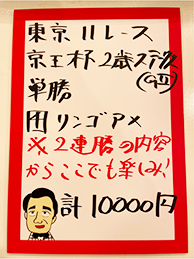 東京11レース
京王杯2歳ステークス
(GⅡ)
単勝
④リンゴアメ
※2連勝の内容
からここでも楽しみ!
計10000円